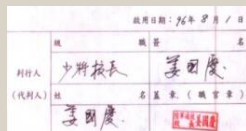 啟用日期：96年8月1日
級 職 簽 名
判行人 少將校長 姜國慶
(代判人) 姓 名 蓋 章，(職 官 章)
姜國慶 姜國慶